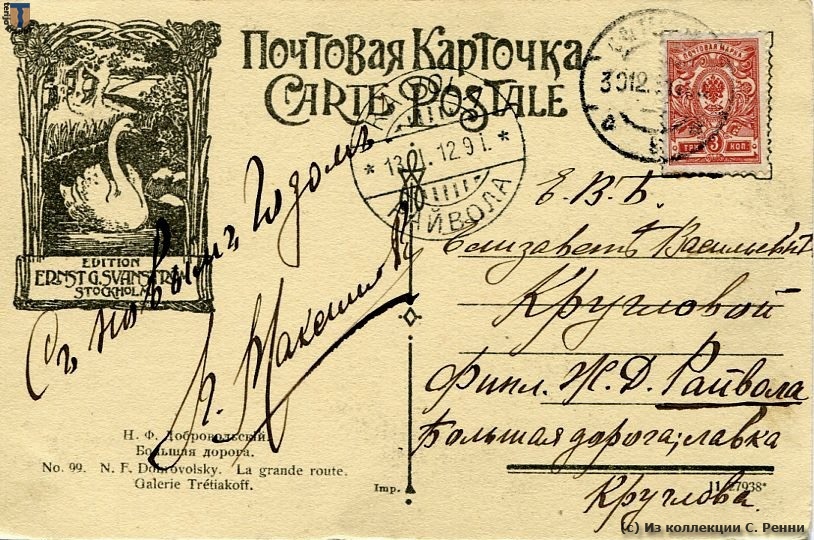 Почтовая Карточка
CARTE POSTALE
EDITION
ERNST G. SVANSTRÖM
STOCKHOLM
РАЙВОЛА
ПОЧТОВАЯ МАРКА
3
ТРИ КОП
Съ новымъ годомъ
Е. В. Б.
Елизаветѣ Васильевнѣ
Кругловой
Финл. Ж. Д. Райвола
Большая дорога; лавка
Круглова.
Н. Ф. Добровольскій.
Большая дорога.
No. 99. N. F. Dobrovolsky. La grande route.
Galerie Trétiakoff.
Imp.
11/27938*
(c) Из коллекции С. Ренни
terijoki